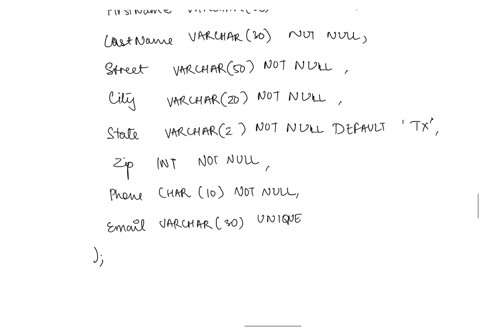 LastName VARCHAR(30) NOT NULL,
Street VARCHAR(50) NOT NULL,
City VARCHAR(20) NOT NULL,
State VARCHAR(2) NOT NULL DEFAULT 'TX',
Zip INT NOT NULL,
Phone CHAR (10) NOT NULL,
Email VARCHAR(30) UNIQUE
);